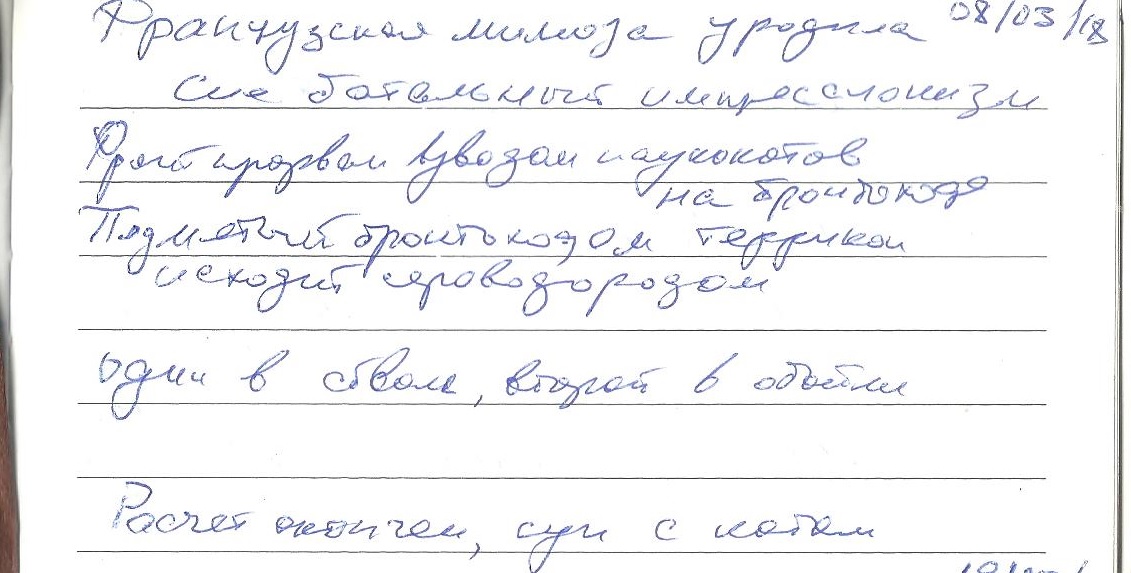 Французская мимоза уродила 08/03/18
Сие батальный импрессионизм
Фронт прорван взводом паукокотов
на бронтокоде
Подмятый бронтокодом террикон
исходит сероводородом
один в стволе, второй в обойме
Расчет окончен, суп с котом